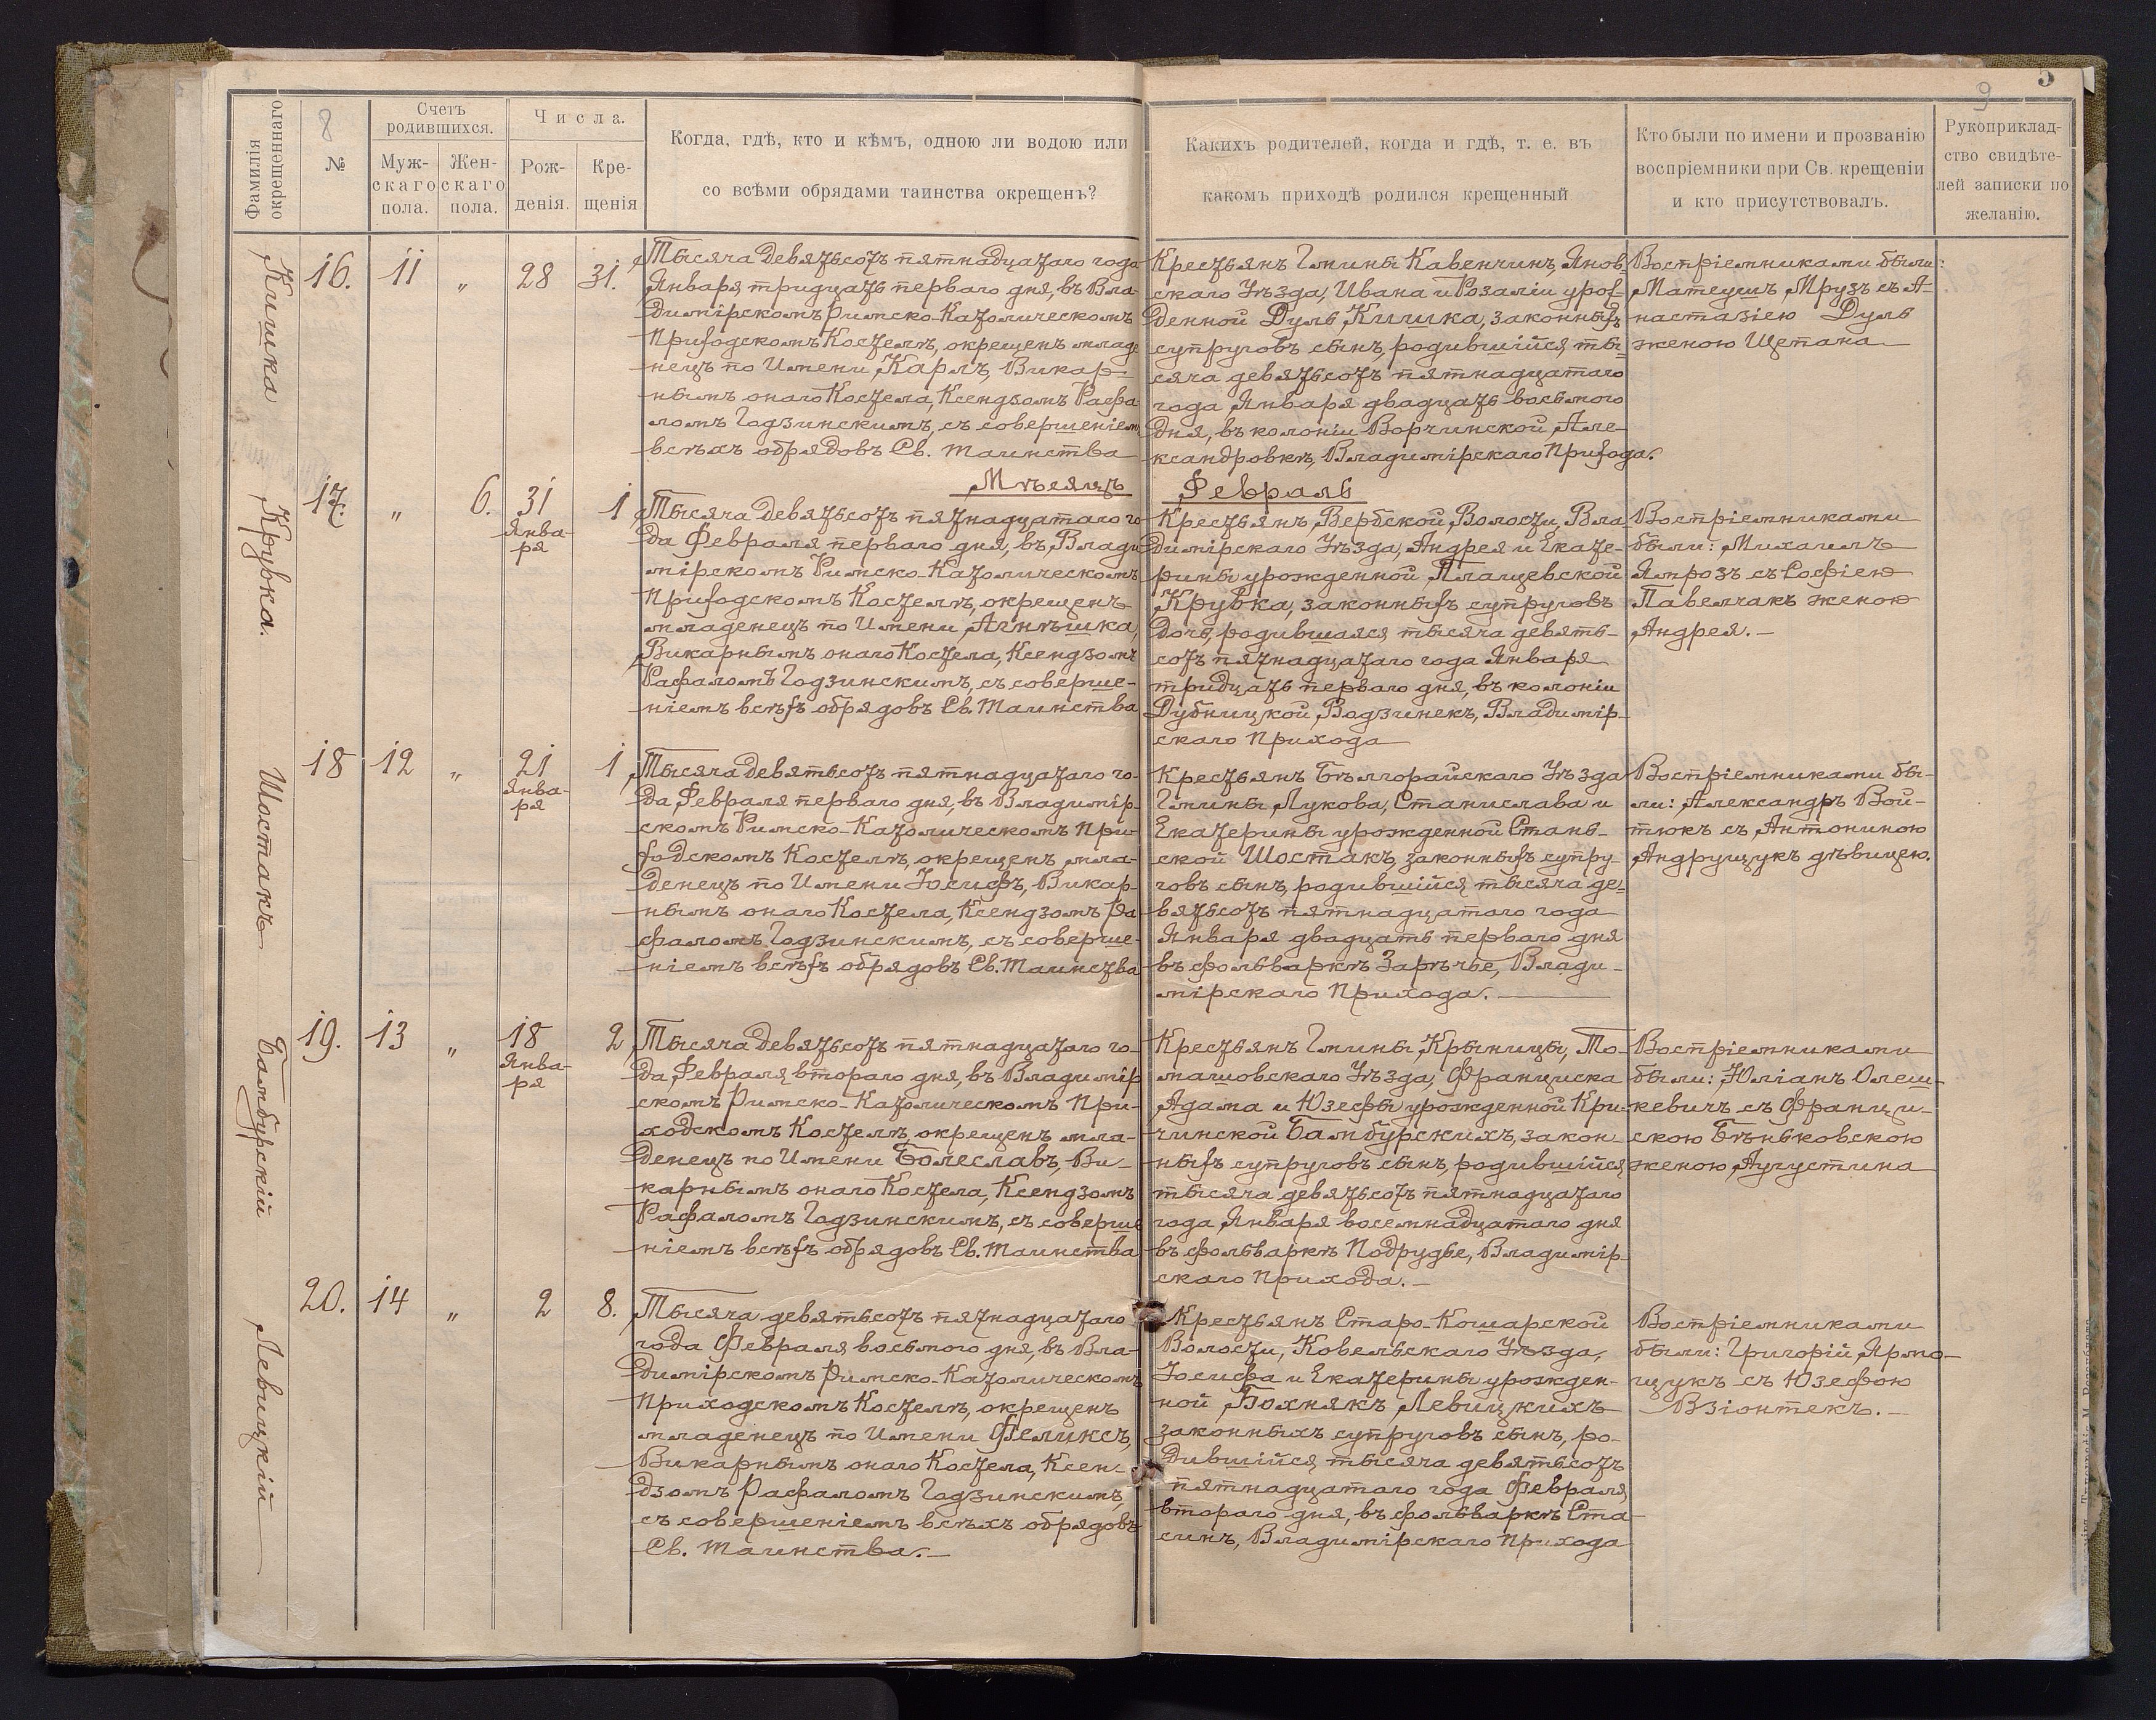 8
9
5
Фамилія окрещеннаго
№
Счетъ родившихся.
Муж-
скаго
пола.
Жен-
скаго
пола.
Числа.
Рож-
денія.
Кре-
щенія
Когда, гдѣ, кто и кѣмъ, одною ли водою или
со всѣми обрядами таинства окрещенъ?
Какихъ родителей, когда и гдѣ, т. е. въ
какомъ приходѣ родился крещенный
Кто были по имени и прозванію
воспріемники при Св. крещеніи
и кто присутствовалъ.
Рукоприклад-
ство свидѣте-
лей записки по
желанію.
Кишка
16. 11 " 28 31.
Тысяча девятьсотъ пятнадцатаго года
Января тридцать перваго дня, въ Вла-
димірскомъ Римско-Католическомъ
Приходскомъ Костелѣ, окрещенъ младе
нецъ по Имени Карлъ, Викар-
нымъ онаго Костела, Ксендзомъ Рафа
ломъ Годзинскимъ, съ совершеніем
всѣхъ обрядовъ Св. Таинства
Крестьянъ Гмины Кавенчинъ, Янов-
скаго Уѣзда, Ивана и Розаліи урож-
денной Дуль, Кишка, законныхъ
супруговъ сынъ, родившійся ты-
сяча девятьсотъ пятнадцатаго
года Января двадцать восьмого
дня, въ колоніи Ворчинской Але-
ксандровкѣ, Владимірскаго Прихода.
Воспріемниками были:
Матеушъ Мрузъ съ А-
настазіею Дуль
женою Щепана
Мѣсяцъ Февраль
Крувка.
17. " 6. 31
Янва-
ря
1
Тысяча девятьсотъ пятнадцатаго го-
да Февраля перваго дня, въ Влади
мірскомъ Римско-Католическомъ
Приходскомъ Костелѣ, окрещенъ
младенецъ по Имени Агнѣшка,
Викарнымъ онаго Костела, Ксендзомъ
Рафаломъ Годзинскимъ, съ соверше-
ніемъ всѣхъ обрядовъ Св. Таинства
Крестьянъ, Вербской Волости, Вла-
димірскаго Уѣзда, Андрея и Екате-
рины урожденной Плащевской
Крувка, законныхъ супруговъ
дочь, родившаяся тысяча девять-
сотъ пятнадцатаго года Января
тридцать перваго дня, въ колоніи
Дубницкой Водзинекъ, Владимір-
скаго Прихода
Воспріемниками
были: Михаилъ
Ямрозъ съ Софіею
Павелчакъ женою
Андрея.
Шостакъ
18 12 " 21
Янва-
ря
1
Тысяча девятьсотъ пятнадцатаго го-
да Февраля перваго дня, въ Владимір-
скомъ Римско-Католическомъ При-
ходскомъ Костелѣ, окрещенъ мла-
денецъ по Имени Іосифъ, Викар-
нымъ онаго Костела, Ксендзомъ Ра
фаломъ Годзинскимъ, съ соверше-
ніемъ всѣхъ обрядовъ Св. Таинства
Крестьянъ Бѣлгорайскаго Уѣзда
Гмины Лукова, Станислава и
Екатерины урожденной Стань-
ской Шостакъ, законныхъ супру-
говъ сынъ, родившійся тысяча де-
вятьсотъ пятнадцатаго года
Января двадцать перваго дня
въ фольваркѣ Зарѣчье, Влади-
мірскаго Прихода.
Воспріемниками бы-
ли: Александръ Вой-
тюкъ съ Антониною
Андрущукъ дѣвицею.
Бамбурскій
19. 13 " 18
Янва-
ря
2
Тысяча девятьсотъ пятнадцатаго го-
да Февраля втораго дня, въ Владимір
скомъ Римско-Католическомъ При-
ходскомъ Костелѣ, окрещенъ мла-
денецъ по Имени Болеславъ, Ви-
карнымъ онаго Костела, Ксендзомъ
Рафаломъ Годзинскимъ, съ соверше
ніемъ всѣхъ обрядовъ Св. Таинства
Крестьянъ Гмины Крыницы, То-
машовскаго Уѣзда, Франциска
Адама и Юзефы урожденной Кри-
чинской Бамбурскихъ, закон-
ныхъ супруговъ сынъ, родившійся
тысяча девятьсотъ пятнадцатаго
года Января восемнадцатаго дня
въ фольваркѣ Подрудье, Владимір-
скаго Прихода.
Воспріемниками
были: Юліанъ Олеш-
кевичъ съ Франци-
скою Бѣньковскою
женою Аугустина
Левицкій
20. 14 " 2 8.
Тысяча девятьсотъ пятнадцатаго
года Февраля восьмого дня, въ Вла-
димірскомъ Римско-Католическомъ
Приходскомъ Костелѣ, окрещенъ
младенецъ по Имени Феликсъ,
Викарнымъ онаго Костела, Ксен-
дзомъ Рафаломъ Годзинскимъ,
съ совершеніемъ всѣхъ обрядовъ
Св. Таинства.
Крестьянъ Старо-Кошарской
Волости, Ковельскаго Уѣзда,
Іосифа и Екатерины урожден-
ной Бохнякъ Левицкихъ
законныхъ супруговъ сынъ, ро-
дившійся тысяча девятьсотъ
пятнадцатаго года Февраля
втораго дня, въ фольваркѣ Ста-
синъ, Владимірскаго Прихода
Воспріемниками
были: Григорій Ярмо-
щукъ съ Юзефою
Взіонтекъ.